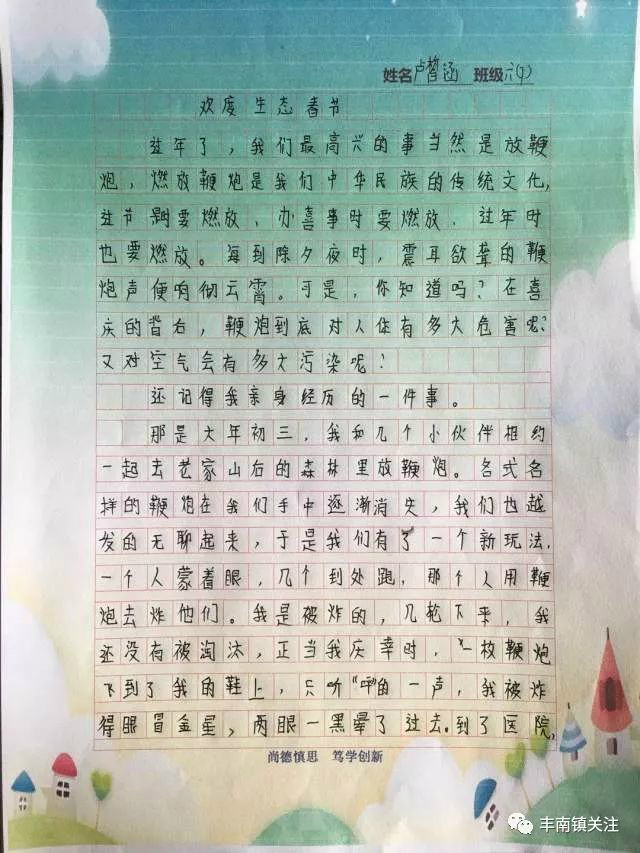 姓名卢皙涵 班级六(4)
欢度生态春节
过年了，我们最高兴的事当然是放鞭
炮，燃放鞭炮是我们中华民族的传统文化，
过节要燃放、办喜事时要燃放、过年时
也要燃放。每到除夕夜时，震耳欲聋的鞭
炮声便响彻云霄。可是，你知道吗？在喜
庆的背后，鞭炮到底对人体有多大危害呢？
又对空气会有多大污染呢？
还记得我亲身经历的一件事。
那是大年初三，我和几个小伙伴相约
一起去老家山后的森林里放鞭炮。各式各
样的鞭炮在我们手中逐渐消失，我们也越
发的无聊起来，于是我们有了一个新玩法，
一个人蒙着眼，几个到处跑，那个人用鞭
炮去炸他们。我是被炸的，几轮下来，我
还没有被淘汰，正当我庆幸时，一枚鞭炮
飞到了我的鞋上，只听“呯”的一声，我被炸
得眼冒金星，两眼一黑晕了过去。到了医院，
尚德慎思 笃学创新
丰南镇关注